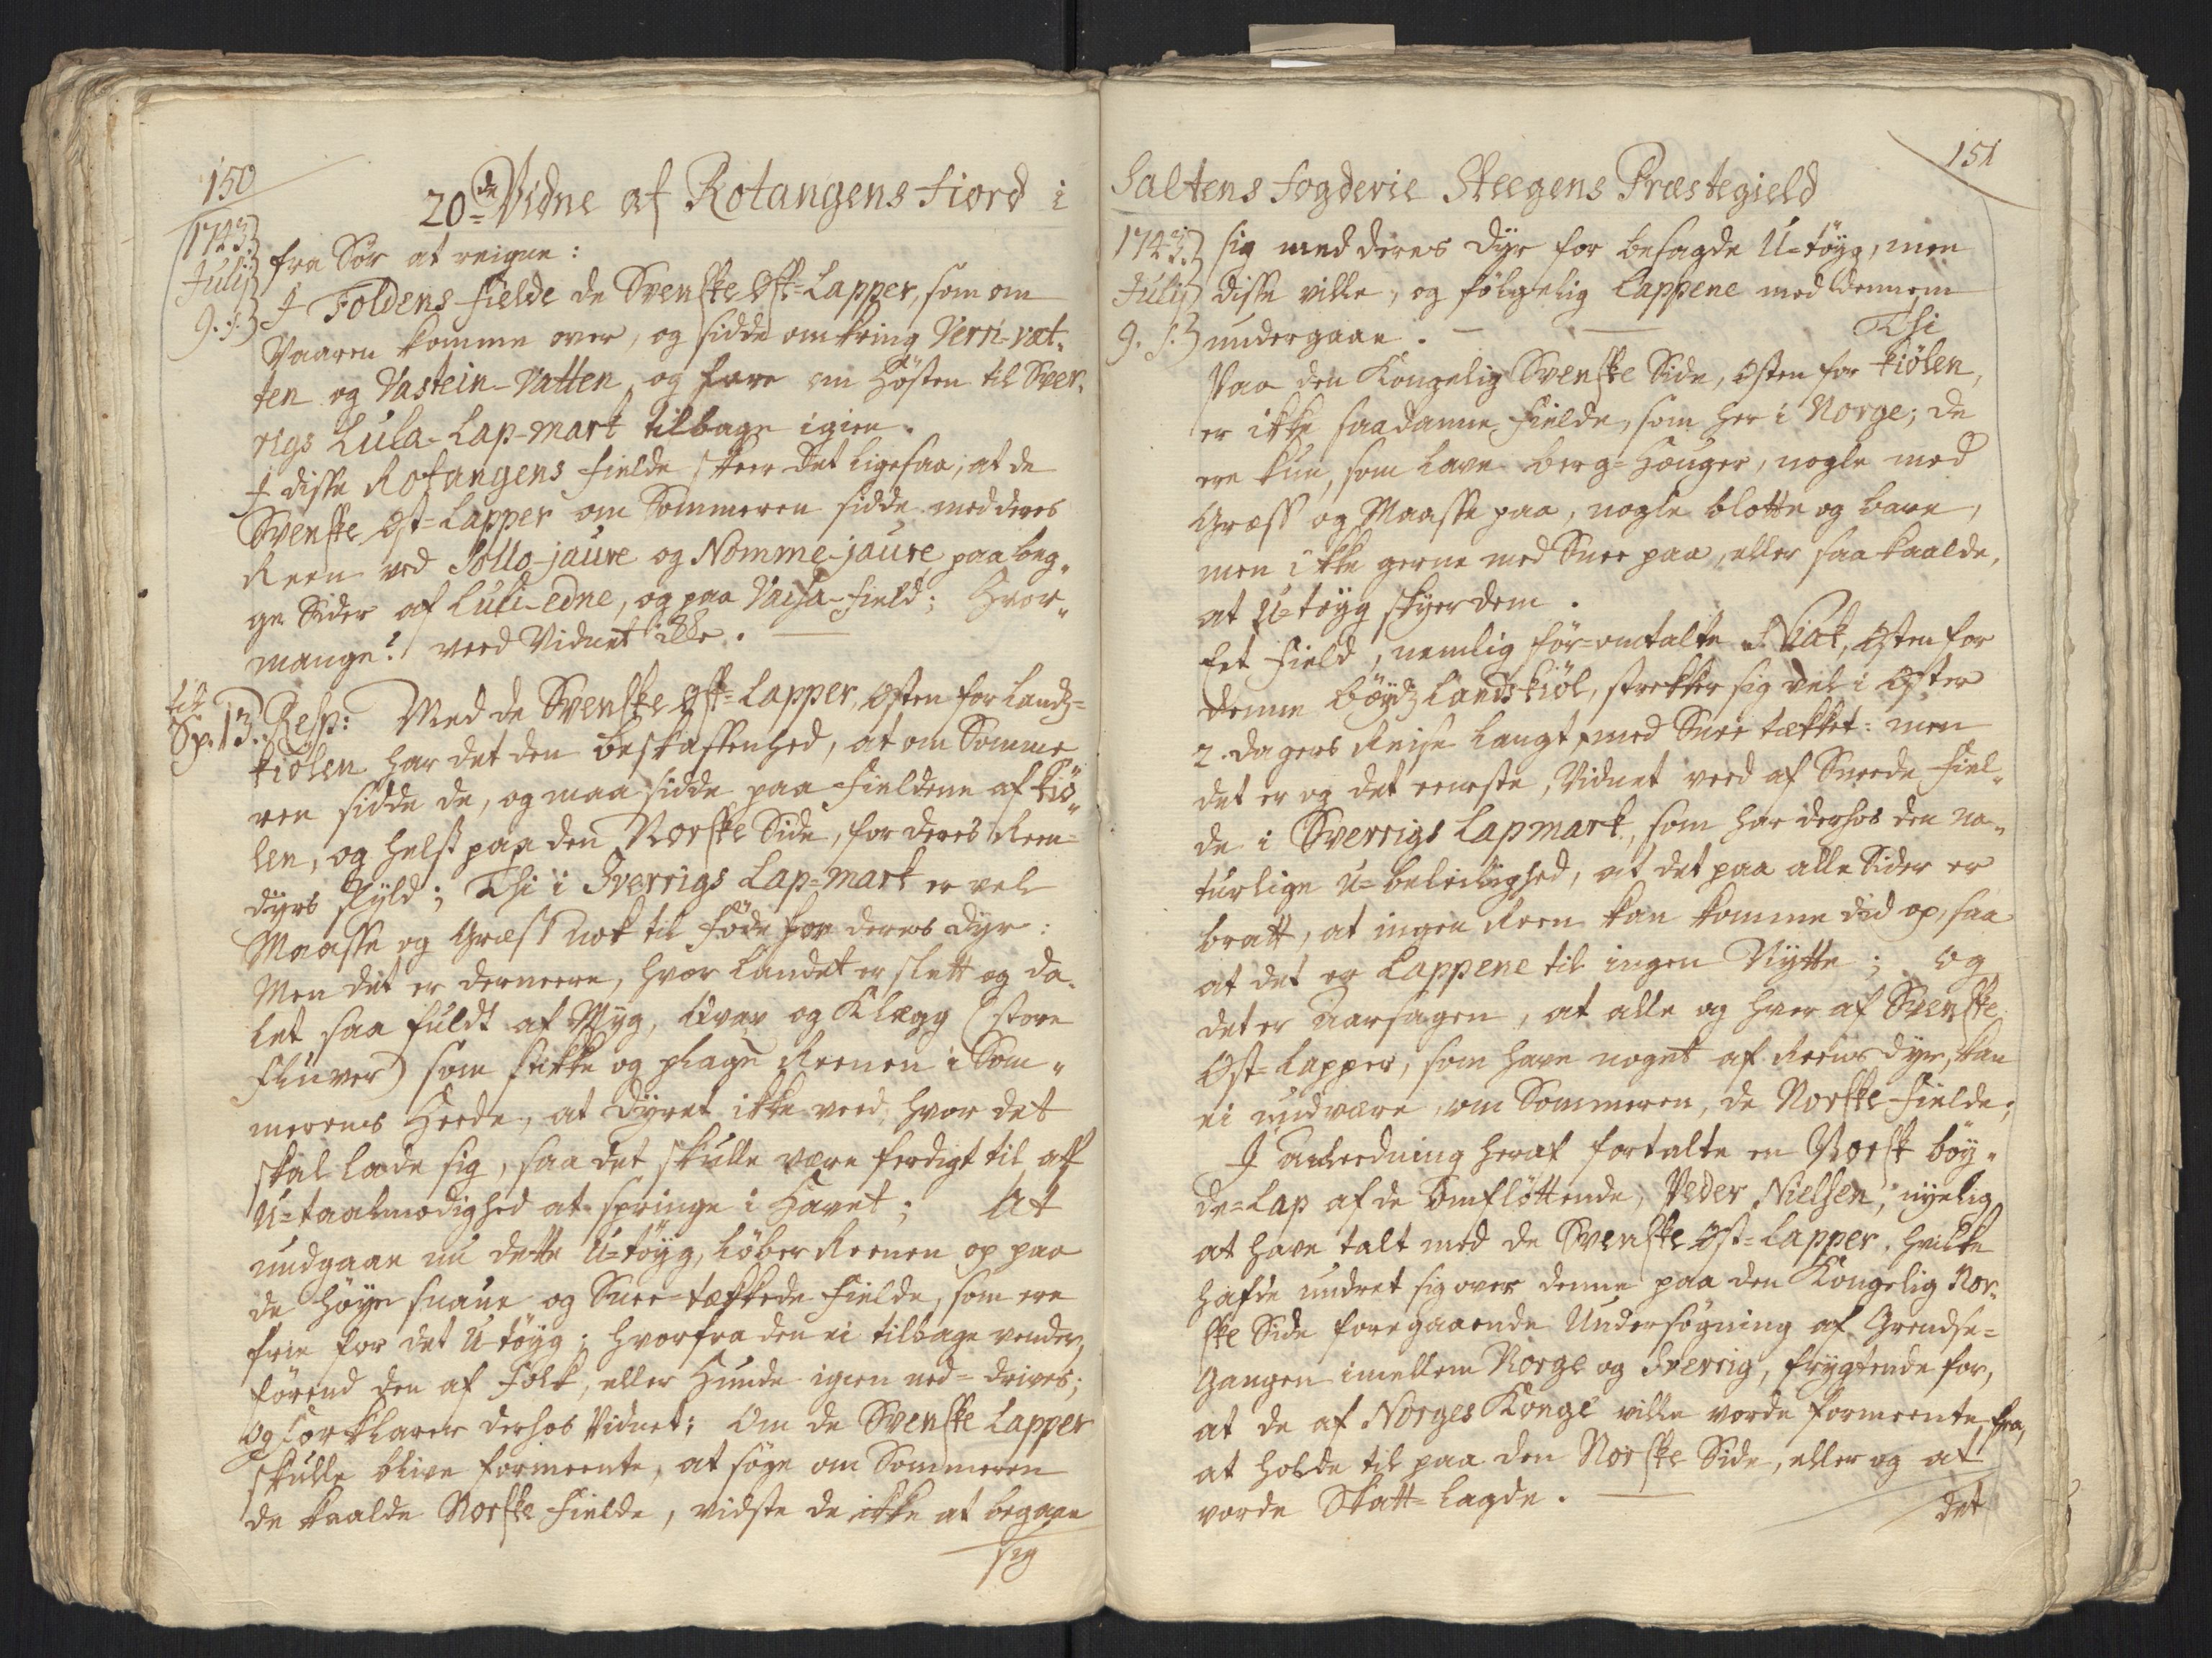 150
20de Vidne af Rotangens Fiord i
1743.
Julij
9. s.
fra Sør at reigne:
I Foldens Fielde de Svenske Øst-Lapper, som om
Vaaren komme over, og sidde omkring Verri-vat-
ten og Vastein-Vatten, og fare om Høsten til Sver-
rigs Lula-Lap-mark tilbage igien.
I disse Rotangens Fielde skeer det ligesaa, at de
Svenske Øst-Lapper om Sommeren sidde med deres
Reen ved Sollo-jaure og Nomme-jaure paa beg-
ge Sider af Luli-edne, og paa Vaisa-Field; Hvor-
mange? veed Vidnet ikke.
til
Sp. 13. Resp: Med de Svenske Øst-Lapper, Østen for Lands-
kiølen har det den beskaffenhed, at om Somme
ren sidde de, og maa sidde paa Fieldene af Kiö-
len, og helst paa den Norske Side, for deres Reen-
dyrs skyld; Thi i Sverrigs Lap-mark er vel
Maasse og Græss nok til Föde for deres Dyr:
Men det er derneere, hvor Landet er slett og da-
let saa fuldt af Myg, Qvær og Klægg (store
fluver) som stikke og plage Reenen i Som-
merens Heede, at Dyret ikke veed, hvor det
skal lade sig, saa det skulle være ferdigt til aff
U-taalmodighed at springe i Havet; At
undgaae nu dette U-töyg, löber Reenen op paa
de höye snaue og Snee-tækkede Fielde, som ere
frie for det U-töyg; hvorfra den ei tilbage vender,
förend den af Folk, eller Hunde igien ned-drives;
Og Forklarer derhos Vidnet: Om de Svenske Lapper
skulle blive formeente, at söge om Sommeren
de kaalde Norske Fielde, vidste de ikke at begaae
sig
151
Saltens Fogderie Steegens Præstegield
1743.
Julij
9. s.
sig med deres Dyr for besagde U-töyg, men
disse ville, og fölgelig Lappene med dennem
undergaae. Thi
Paa den Kongelig Svenske Side, Østen for Kiölen,
er ikke saadanne Fielde, som her i Norge; de
ere kun, som lave berg-Houger, nogle med
Græss og Maasse paa, nogle blotte og bare,
men ikke gerne med Snee paa, eller saa kaalde,
at U-töyg skyer dem.
Eet Field, nemlig för-omtalte Niak, Østen for
denne bøyds Landskiöl, strekker sig vel i Øster
2. dagers Reise langt, med Snee tækket: men
det er og det eeneste, Vidnet veed af Sneede Fiel-
de i Sverrigs Lapmark, som har derhos den na-
turlige U-beleilighed, at det paa alle Sider er
bratt, at ingen Reen kan komme did op, saa
at det er Lappene til ingen Nytte; og
det er Aarsagen, at alle og hver af Svenske
Øst-Lapper, som have noget af Reensdyr, kan
ei undvære, om Sommeren, de Norske Fielde;
I anleedning heraf fortalte en Norsk böy-
de-Lap af de omflöttende, Peder Nielsen, nyelig
at have talt med de Svenske Øst-Lapper, hvilke
hafde undret sig over denne paa den Kongelig Nor-
ske Side foregaaende Undersögning af Grendse-
Gangen imellem Norge og Sverrig, frygtende for,
at de af Norges Konge ville vorde formeente fra,
at holde til paa den Norske Side, eller og at
vorde Skatt-lagde.
det